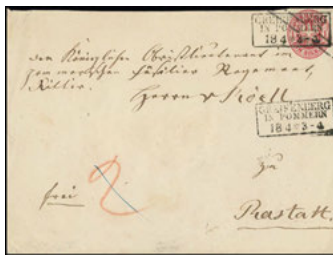 GREIFENBERG
IN POMMERN
18 4 * 3-4
den Königlichen Obristlieutenant im
pommerschen Füsilier Regiment,
Ritter
Herrn v
GREIFENBERG
IN POMMERN
18 4 * 3-4
zu
frei 2
Rastatt.